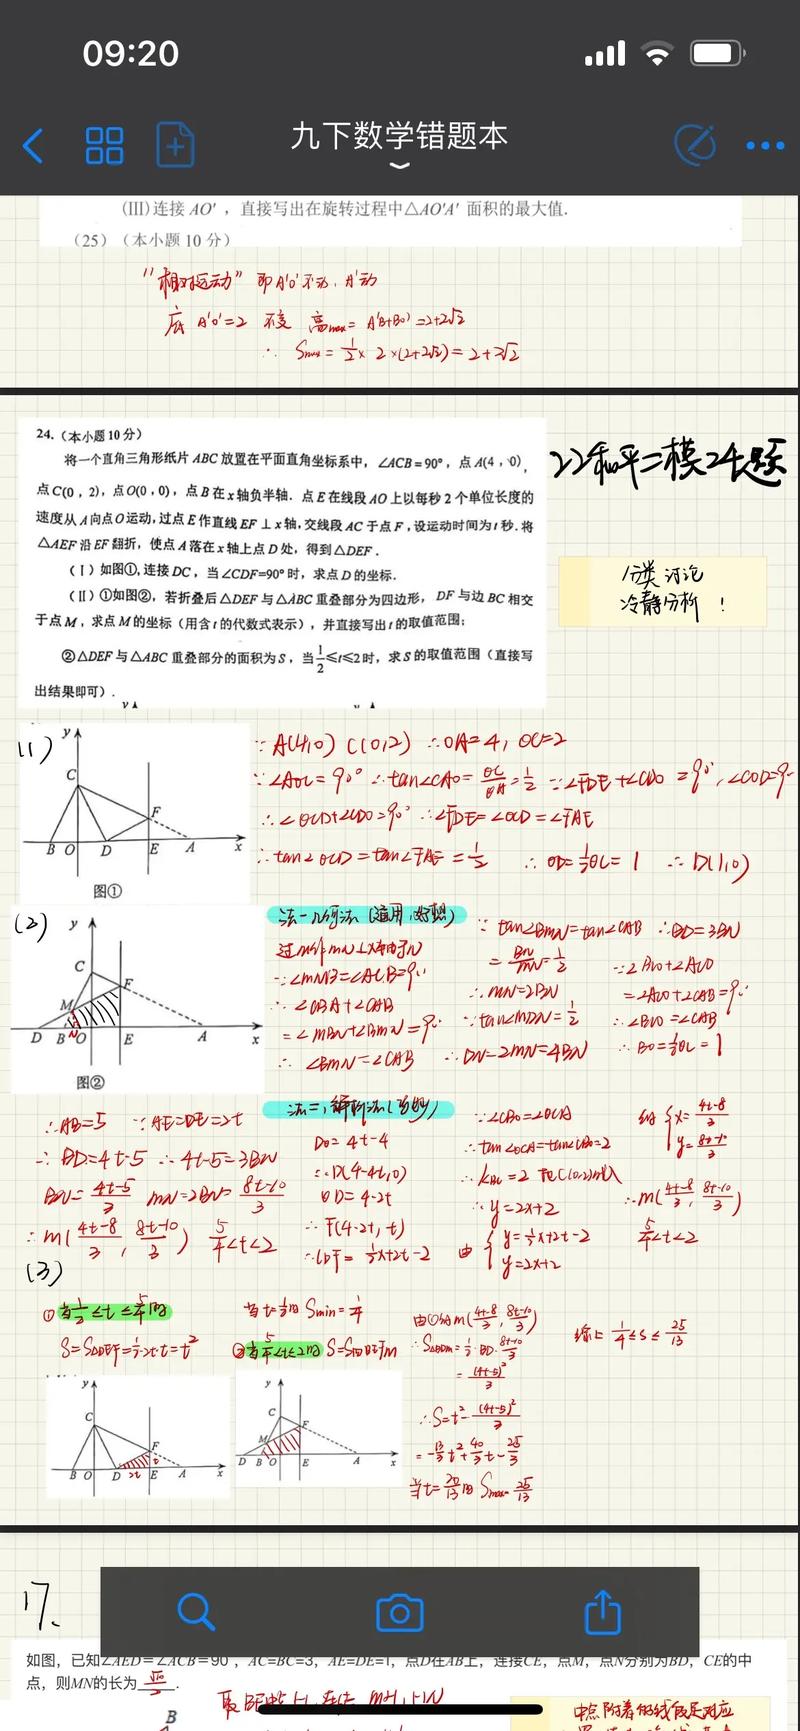 09:20
九下数学错题本
(III)连接 AO′ ，直接写出在旋转过程中△AO′A′ 面积的最大值.
(25) (本小题 10 分)
"相对运动" 即 A′O′不动，A′动
底 A′O′=2 不变 高max= A′B+BO′=2+2√2
∴ Smax = 1/2 × 2 ×(2+2√2)= 2+2√2
24. (本小题 10 分)
将一个直角三角形纸片 ABC 放置在平面直角坐标系中，∠ACB = 90°，点 A(4 , 0)，
点 C(0 , 2)，点 O(0 , 0)，点 B 在 x 轴负半轴．点 E 在线段 AO 上以每秒 2 个单位长度的
速度从 A 向点 O 运动，过点 E 作直线 EF ⊥ x 轴，交线段 AC 于点 F，设运动时间为 t 秒．将
△AEF 沿 EF 翻折，使点 A 落在 x 轴上点 D 处，得到△DEF．
(Ⅰ) 如图①，连接 DC，当∠CDF=90° 时，求点 D 的坐标．
(Ⅱ) ①如图②，若折叠后△DEF 与△ABC 重叠部分为四边形，DF 与边 BC 相交
于点 M，求点 M 的坐标（用含 t 的代数式表示），并直接写出 t 的取值范围；
②△DEF 与△ABC 重叠部分的面积为 S，当 1/2 ≤ t ≤ 2 时，求 S 的取值范围（直接写
出结果即可）．
22和平二模24题
分类讨论
冷静分析 ！
(1)
y C F B O D E A x
图①
∵ A(4,0) C(0,2) ∴OA=4, OC=2
∵∠AOC=90° ∴tan∠CAO= OC/OA = 1/2 ∵∠FDE+∠CDO =90°, ∠COD=90°
∴∠OCD+∠CDO=90° ∴∠FDE=∠OCD=∠FAE
∴tan∠OCD=tan∠FAE = 1/2 ∴OD=1/2OC=1 ∴D(1,0)
(2)
y C F M D B N O E A x
图②
法一:几何法
过M作MN⊥x轴于N
∵∠MNB=∠ACB=90°
∴∠CBA+∠CAB
=∠MBN+∠BMN=90°
∴∠BMN=∠CAB
∵tan∠BMN=tan∠CAB
= BN/MN = 1/2
∴MN=2BN
∵tan∠MDN=1/2
∴DN=2MN=4BN
∴BD=3BN
∵∠BCO+∠ACO
=∠ACO+∠CAB=90°
∴∠BCO=∠CAB
∴BO=1/2OC=1
∴AB=5 ∵AE=DE=2t
∴BD=4t-5 ∴4t-5=3BN
BN= (4t-5)/3 MN=2BN= (8t-10)/3
∴M( (4t-8)/3 , (8t-10)/3 ) 5/4<t<2
法二:解析法
DO=4t-4
∴D(4-4t,0)
∴F(4-2t, t)
∴lDF= 1/2x+2t-2
∵∠CBO=∠OCA
∴tan∠OCA=tan∠CBO=2
∴kBC=2 把C(0,2)代入
∴y=2x+2
由 { y=1/2x+2t-2
y=2x+2
{ x= (4t-8)/3
y= (8t-10)/3
∴M( (4t-8)/3 , (8t-10)/3 )
5/4<t<2
(3)
①当1/2≤t≤5/4时
S=S△DEF=1/2·2t·t=t²
当t=1/2时 Smin=1/4
②当5/4<t≤2时
由①知M( (4t-8)/3 , (8t-10)/3 )
∴S△BDM=1/2·BD· (8t-10)/3
= (4t-5)²/3
∴S=t²- (4t-5)²/3
=-13/3t²+40/3t-25/3
当t=20/13时 Smax=25/13
综上 1/4≤S≤25/13
y C F B O D E A x 2t t
y C F M D B O E A x
17.
如图，已知∠AED=∠ACB=90°，AC=BC=3，AE=DE=1，点D在AB上，连接CE，点M，点N分别为BD，CE的中
点，则MN的长为
B